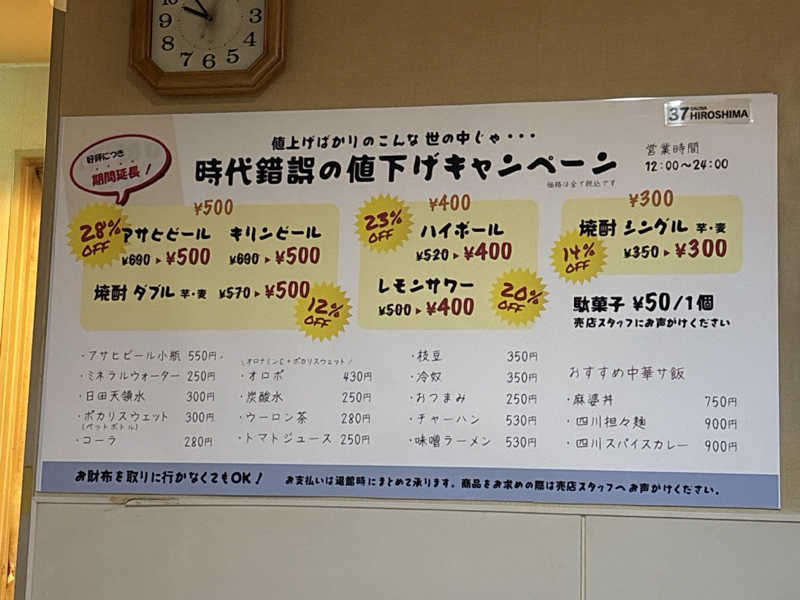 37 SAUNA HIROSHIMA
値上げばかりのこんな世の中じゃ・・・
好評につき
期間延長！
時代錯誤の値下げキャンペーン
価格は全て税込です
営業時間
12:00〜24:00
¥500
28% OFF
アサヒビール キリンビール
¥690▶¥500 ¥690▶¥500
焼酎 ダブル 芋・麦 ¥570▶¥500
12% OFF
¥400
23% OFF
ハイボール
¥520▶¥400
レモンサワー
¥500▶¥400
20% OFF
¥300
焼酎 シングル 芋・麦
14% OFF
¥350▶¥300
駄菓子 ¥50/1個
売店スタッフにお声がけください
・アサヒビール小瓶 550円
・ミネラルウォーター 250円
・日田天領水 300円
・ポカリスウェット 300円
(ペットボトル)
・コーラ 280円
\オロナミンC+ポカリスウェット/
・オロポ 430円
・炭酸水 250円
・ウーロン茶 280円
・トマトジュース 250円
・枝豆 350円
・冷奴 350円
・おつまみ 250円
・チャーハン 530円
・味噌ラーメン 530円
おすすめ中華サ飯
・麻婆丼 750円
・四川担々麺 900円
・四川スパイスカレー 900円
お財布を取りに行かなくてもOK！ お支払いは退館時にまとめて承ります。商品をお求めの際は売店スタッフへお声がけください。